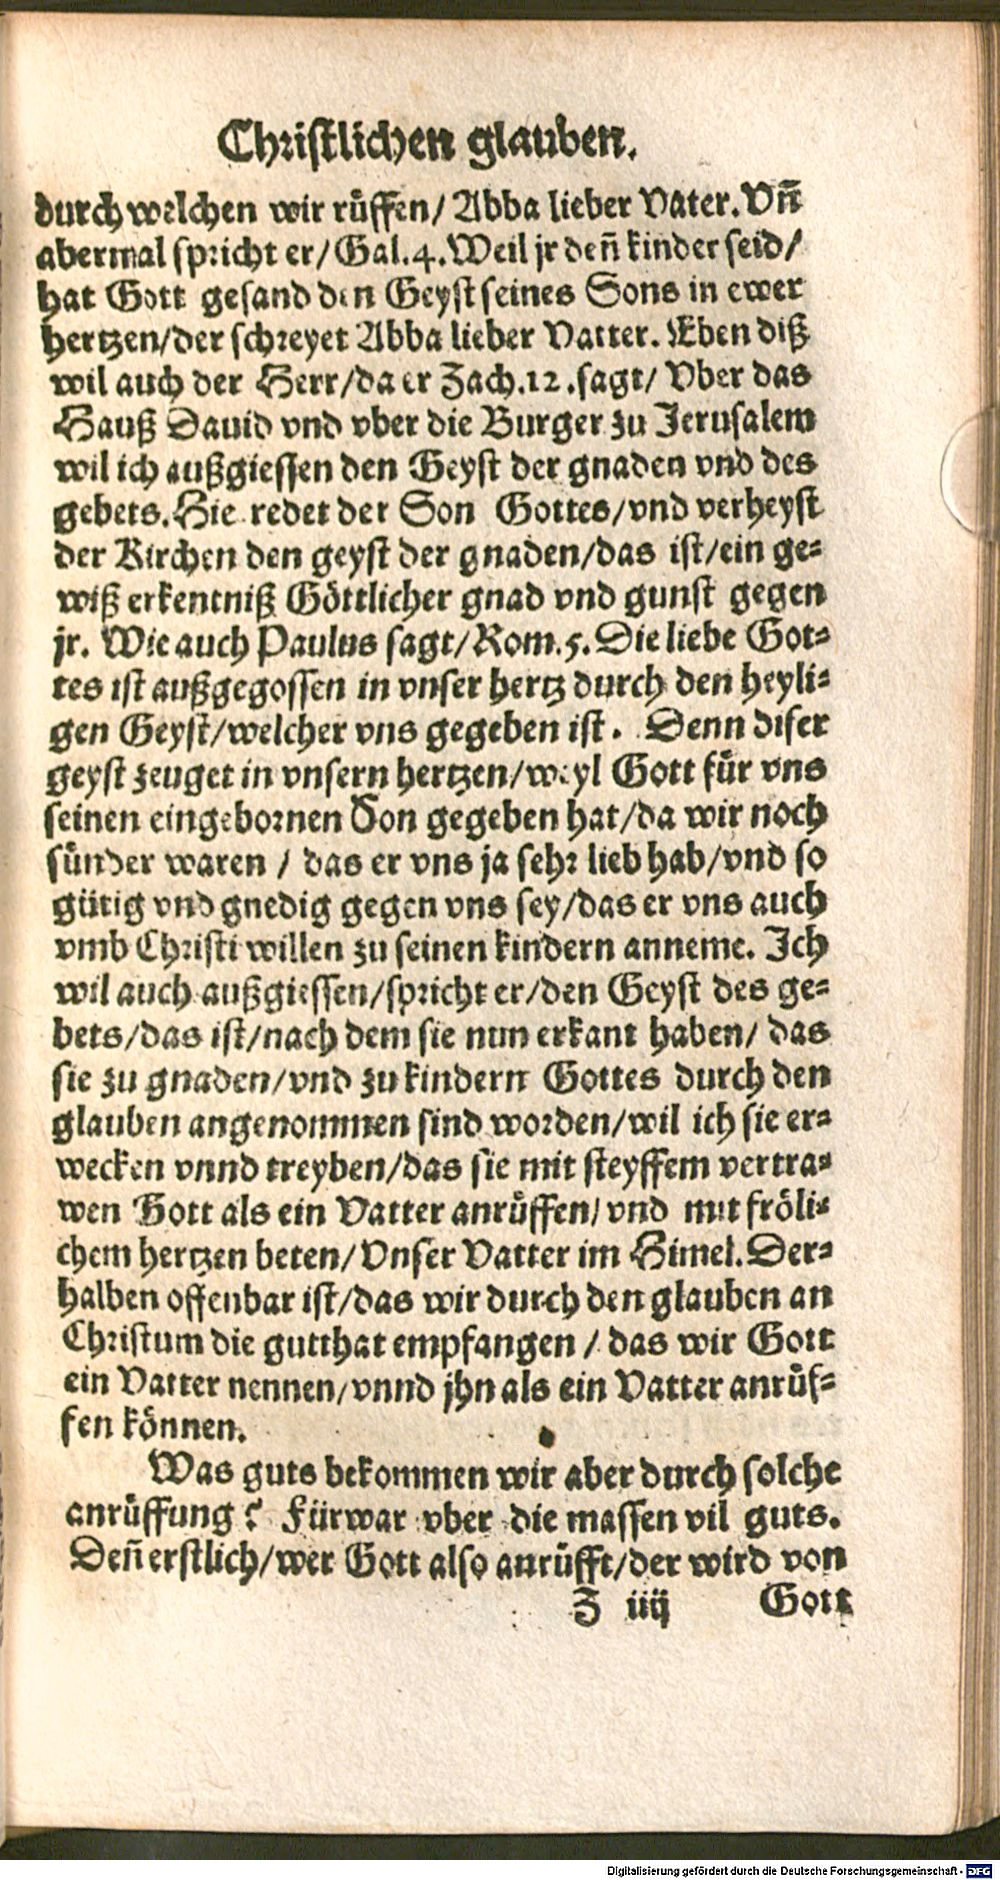 Christlichen glauben.
durch welchen wir rüffen/ Abba lieber Vater. Vñ
abermal spricht er/ Gal. 4. Weil jr deñ kinder seid/
hat Gott gesand den Geyst seines Sons in ewer
hertzen/ der schreyet Abba lieber Vatter. Eben diß
wil auch der Herr/ da er Zach. 12. sagt/ Vber das
Hauß Dauid vnd vber die Burger zu Jerusalem
wil ich außgiessen den Geyst der gnaden vnd des
gebets. Hie redet der Son Gottes/ vnd verheyst
der Kirchen den geyst der gnaden/ das ist/ ein ge-
wiß erkentniß Göttlicher gnad vnd gunst gegen
jr. Wie auch Paulus sagt/ Rom. 5. Die liebe Got-
tes ist außgegossen in vnser hertz durch den heyli-
gen Geyst/ welcher vns gegeben ist. Denn diser
geyst zeuget in vnsern hertzen/ weyl Gott für vns
seinen eingebornen Son gegeben hat/ da wir noch
sünder waren / das er vns ja sehr lieb hab/ vnd so
gütig vnd gnedig gegen vns sey/ das er vns auch
vmb Christi willen zu seinen kindern anneme. Ich
wil auch außgiessen/ spricht er/ den Geyst des ge-
bets/ das ist/ nach dem sie nun erkant haben/ das
sie zu gnaden/ vnd zu kindern Gottes durch den
glauben angenommen sind worden/ wil ich sie er-
wecken vnnd treyben/ das sie mit steyffem vertra-
wen Gott als ein Vatter anrüffen/ vnd mit fröli-
chem hertzen beten/ Vnser Vatter im Himel. Der-
halben offenbar ist/ das wir durch den glauben an
Christum die gutthat empfangen / das wir Gott
ein Vatter nennen/ vnnd jhn als ein Vatter anrüf-
fen können.
Was guts bekommen wir aber durch solche
anrüffung? Fürwar vber die massen vil guts.
Deñ erstlich/ wer Gott also anrüfft/ der wird von
Z iiij Gott
Digitalisierung gefördert durch die Deutsche Forschungsgemeinschaft - DFG